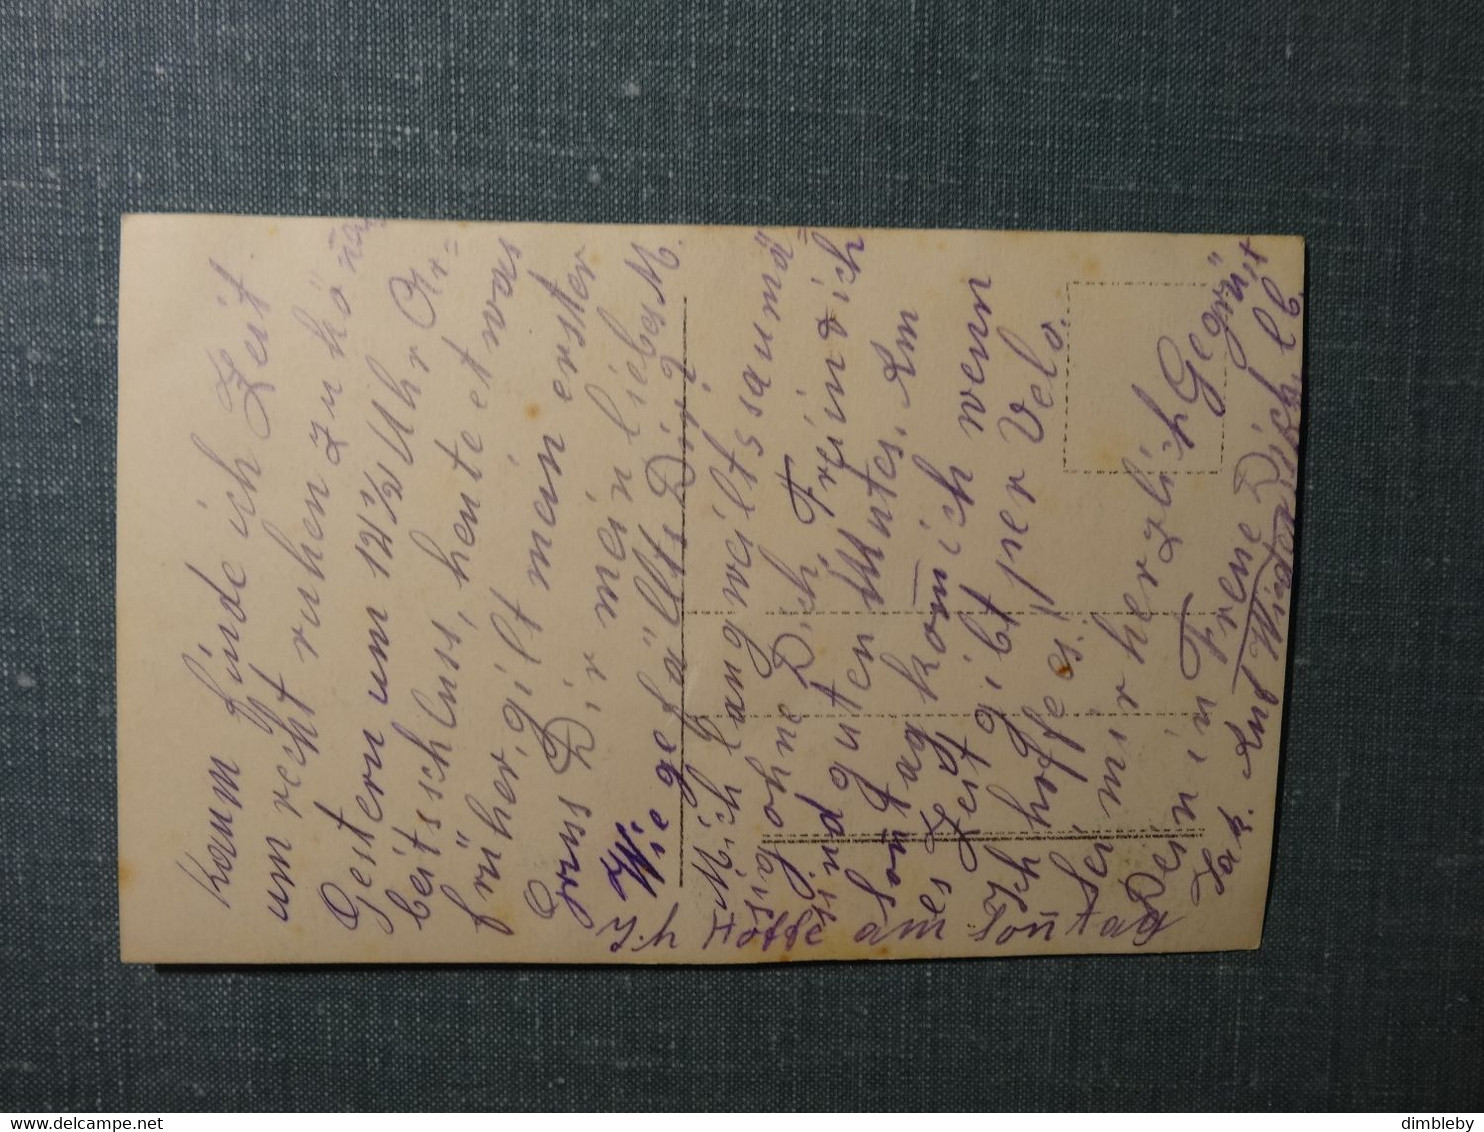 Kaum finde ich Zeit
um recht ruhen zu köña
Gestern um 12½ Uhr Ar=
beitsschluss, heute etwas
früher, gilt mein erster
Gruss Dir mein liebes M.
Wie gefällts Dir?
Mich langweilts saumä
ohne Dich, Freind ich
guten Mutes. Am
Soñtag kom̄ ich wenn
es Zeit gibt per Velo.
Ich hoffe es!
Sei mir herzlich Gegrüst
Dein Freind
Jak.
Auf Wiedersehen
Ich Hoffe am Soñtag
dimbleby